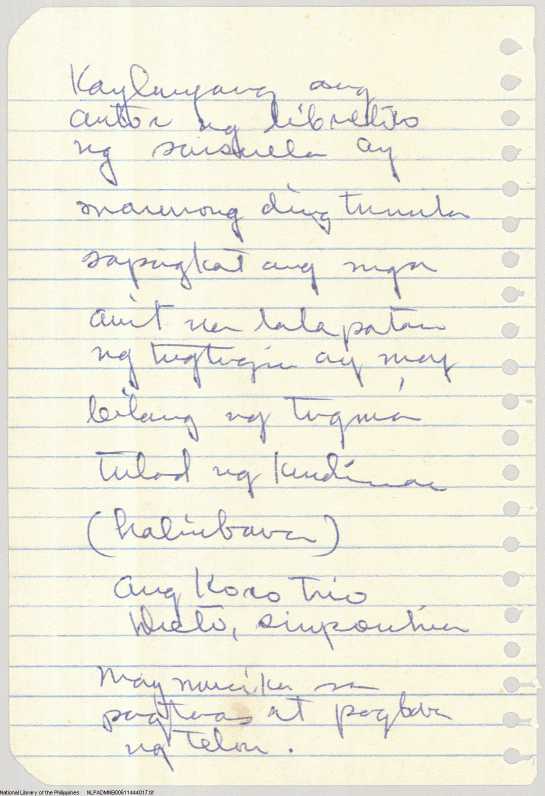 Kaylangang ang
autor ng libretto
ng sarsuela ay
marunong ding tumula
sapagkat ang mga
awit na lalapatan
ng tugtugin ay may
bilang ng tugma
tulad ng kundiman
(halimbawa)
ang Koro Trio
Dueto,
may musika sa
pagtaas at pagbaba
ng telon.
National Library of the Philippines